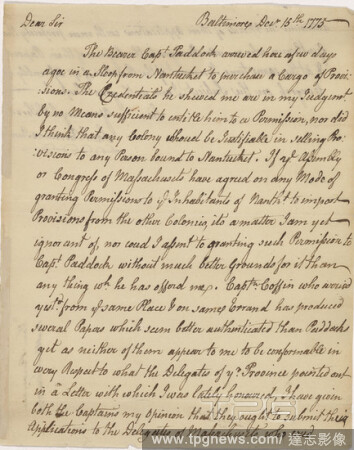 Dear Sir
Baltimore Decr. 15th. 1775
The Bearer Capt. Paddock arrived here a few days
agoe in a Sloop from Nantucket to purchase a Cargo of Provi-
sions. The Credentials he shewed me are in my Judgmt.
by no Means sufficient to entitle him to a Permission, nor did
I think that any Colony should be Justifiable in selling Pro-
visions to any Person bound to Nantucket. If ye Assembly
or Congress of Massachusetts have agreed on any Mode of
granting Permissions to ye Inhabitants of Nantkt. to import
Provisions from the other Colonies, its a matter I am yet
ignorant of, nor coud I assent to granting such Permission to
Capt. Paddock without much better Grounds for it than
any thing wch. he has offered me. Captn. Coffin who arrived
yestr. from ye same Place & on same Errand has produced
several Papers which seem better authenticated than Paddocks
yet as neither of them appear to me to be conformable in
every Respect to what the Delegates of yr. Province pointed out
in a Letter with which I was lately honoured, I have given
both the Captains my Opinion that they ought to submit their
Applications to the Delegates of Massachusetts who
www.tpgnews.com 達志影像